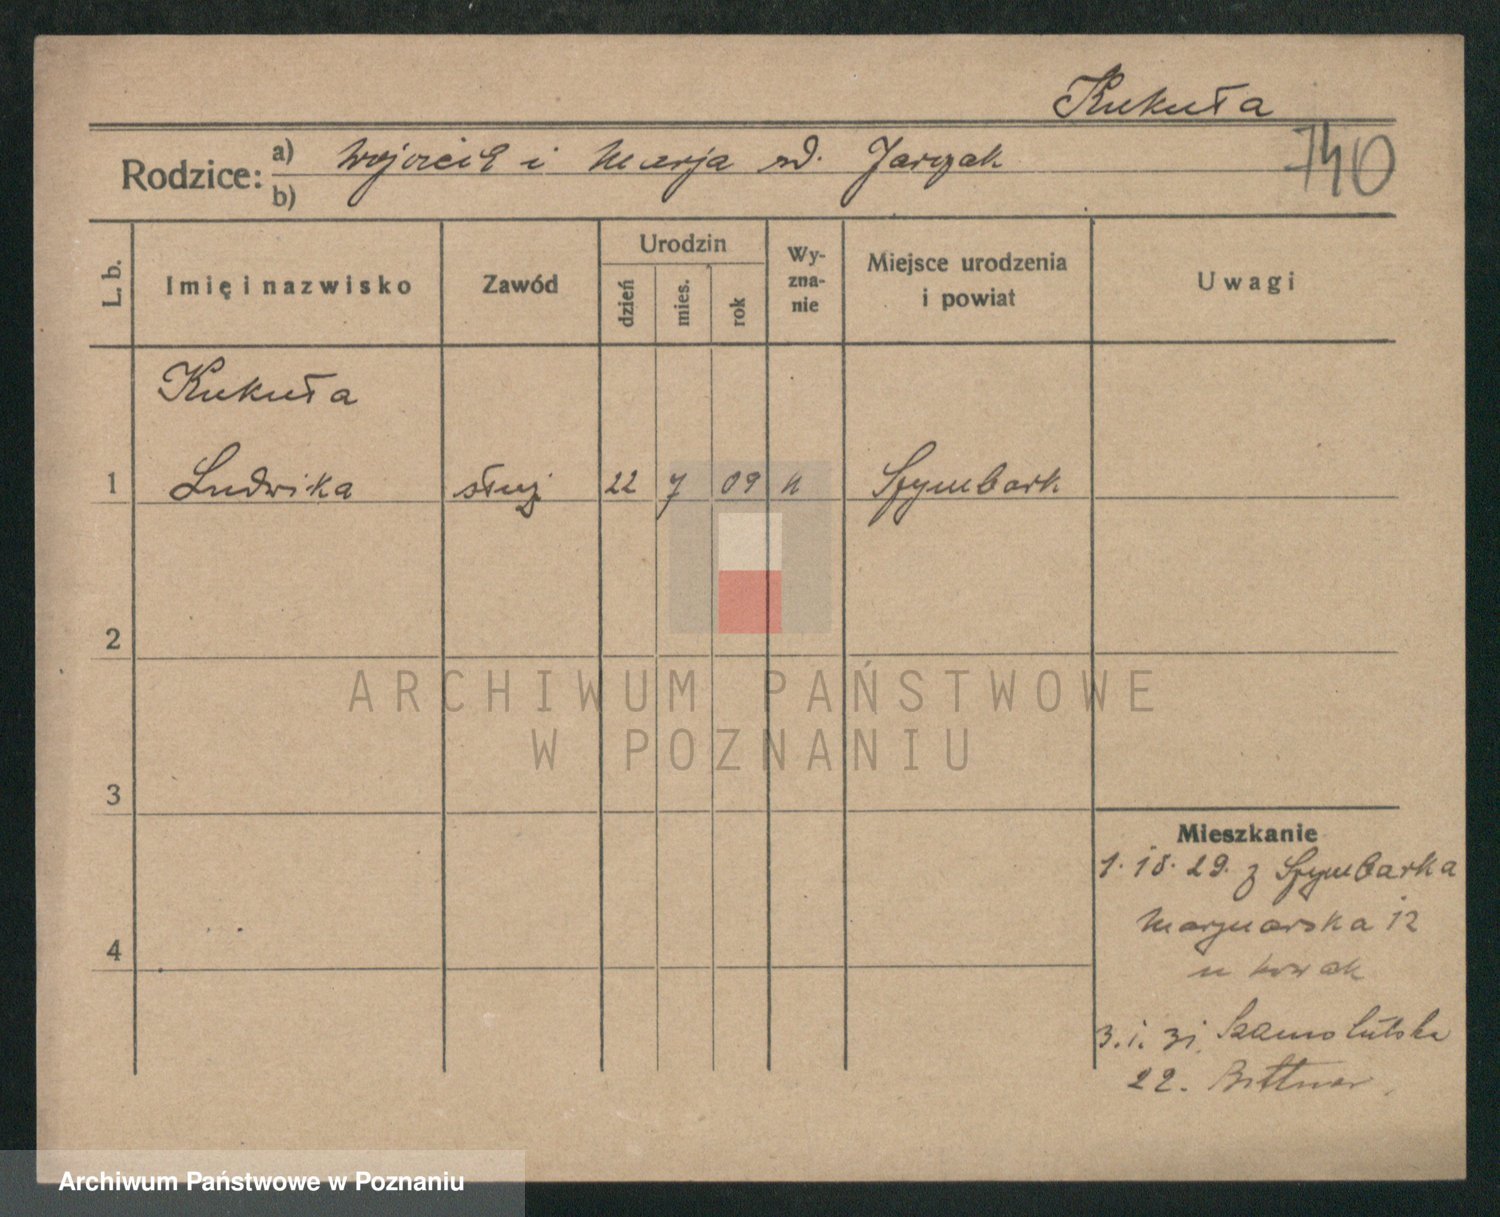 Kukuła
Rodzice: a) Wojciech i Marja zd. Jarczak 740
b)
L. b. Imię i nazwisko Zawód Urodzin dzień mies. rok Wy-zna-nie Miejsce urodzenia i powiat Uwagi
Kukuła
1 Ludwika służ 22 7 09 k Szymbark
2
3
Mieszkanie
1. 10. 29. z Szymbarka
Marynarska 12
4
u Nowak
3. 1. 31. Szamotulska
22. Bittner
ARCHIWUM PAŃSTWOWE
W POZNANIU
Archiwum Państwowe w Poznaniu